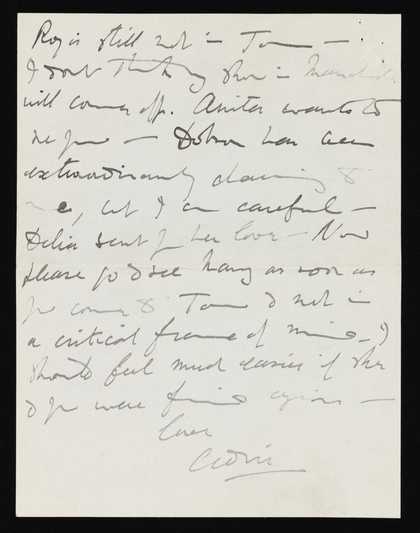 Roy is still not in Town —
I don't think my show in
will come off. Anita wants to
see you — Dobson has been
extraordinarily charming to
me, but I am careful —
Delia sent you her love — Now
please go & see as soon as
you come to Town & not in
a critical frame of mind — I
should feel much easier if she
& you were friends again —
Love
Cedric